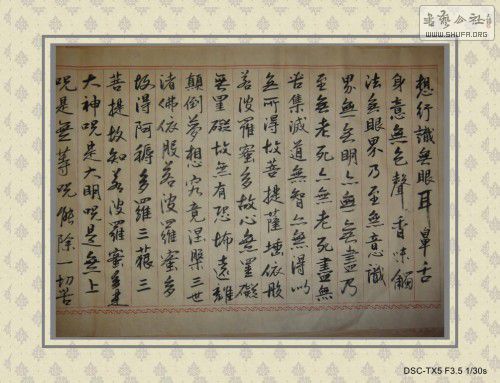 书艺公社
WWW.SHUFA.ORG
想行識無眼耳鼻舌
身意無色聲香味觸
法無眼界乃至無意識
界無無明亦無無盡乃
至無老死亦無老死盡無
苦集滅道無智亦無得以
無所得故菩提薩埵依般
若波羅蜜多故心無罣礙
無罣礙故無有恐怖遠離
顛倒夢想究竟涅槃三世
諸佛依般若波羅蜜多
故得阿耨多羅三藐三
菩提故知若波羅蜜多是
大神咒是大明咒是無上
咒是無等咒能除一切苦
DSC-TX5 F3.5 1/30s